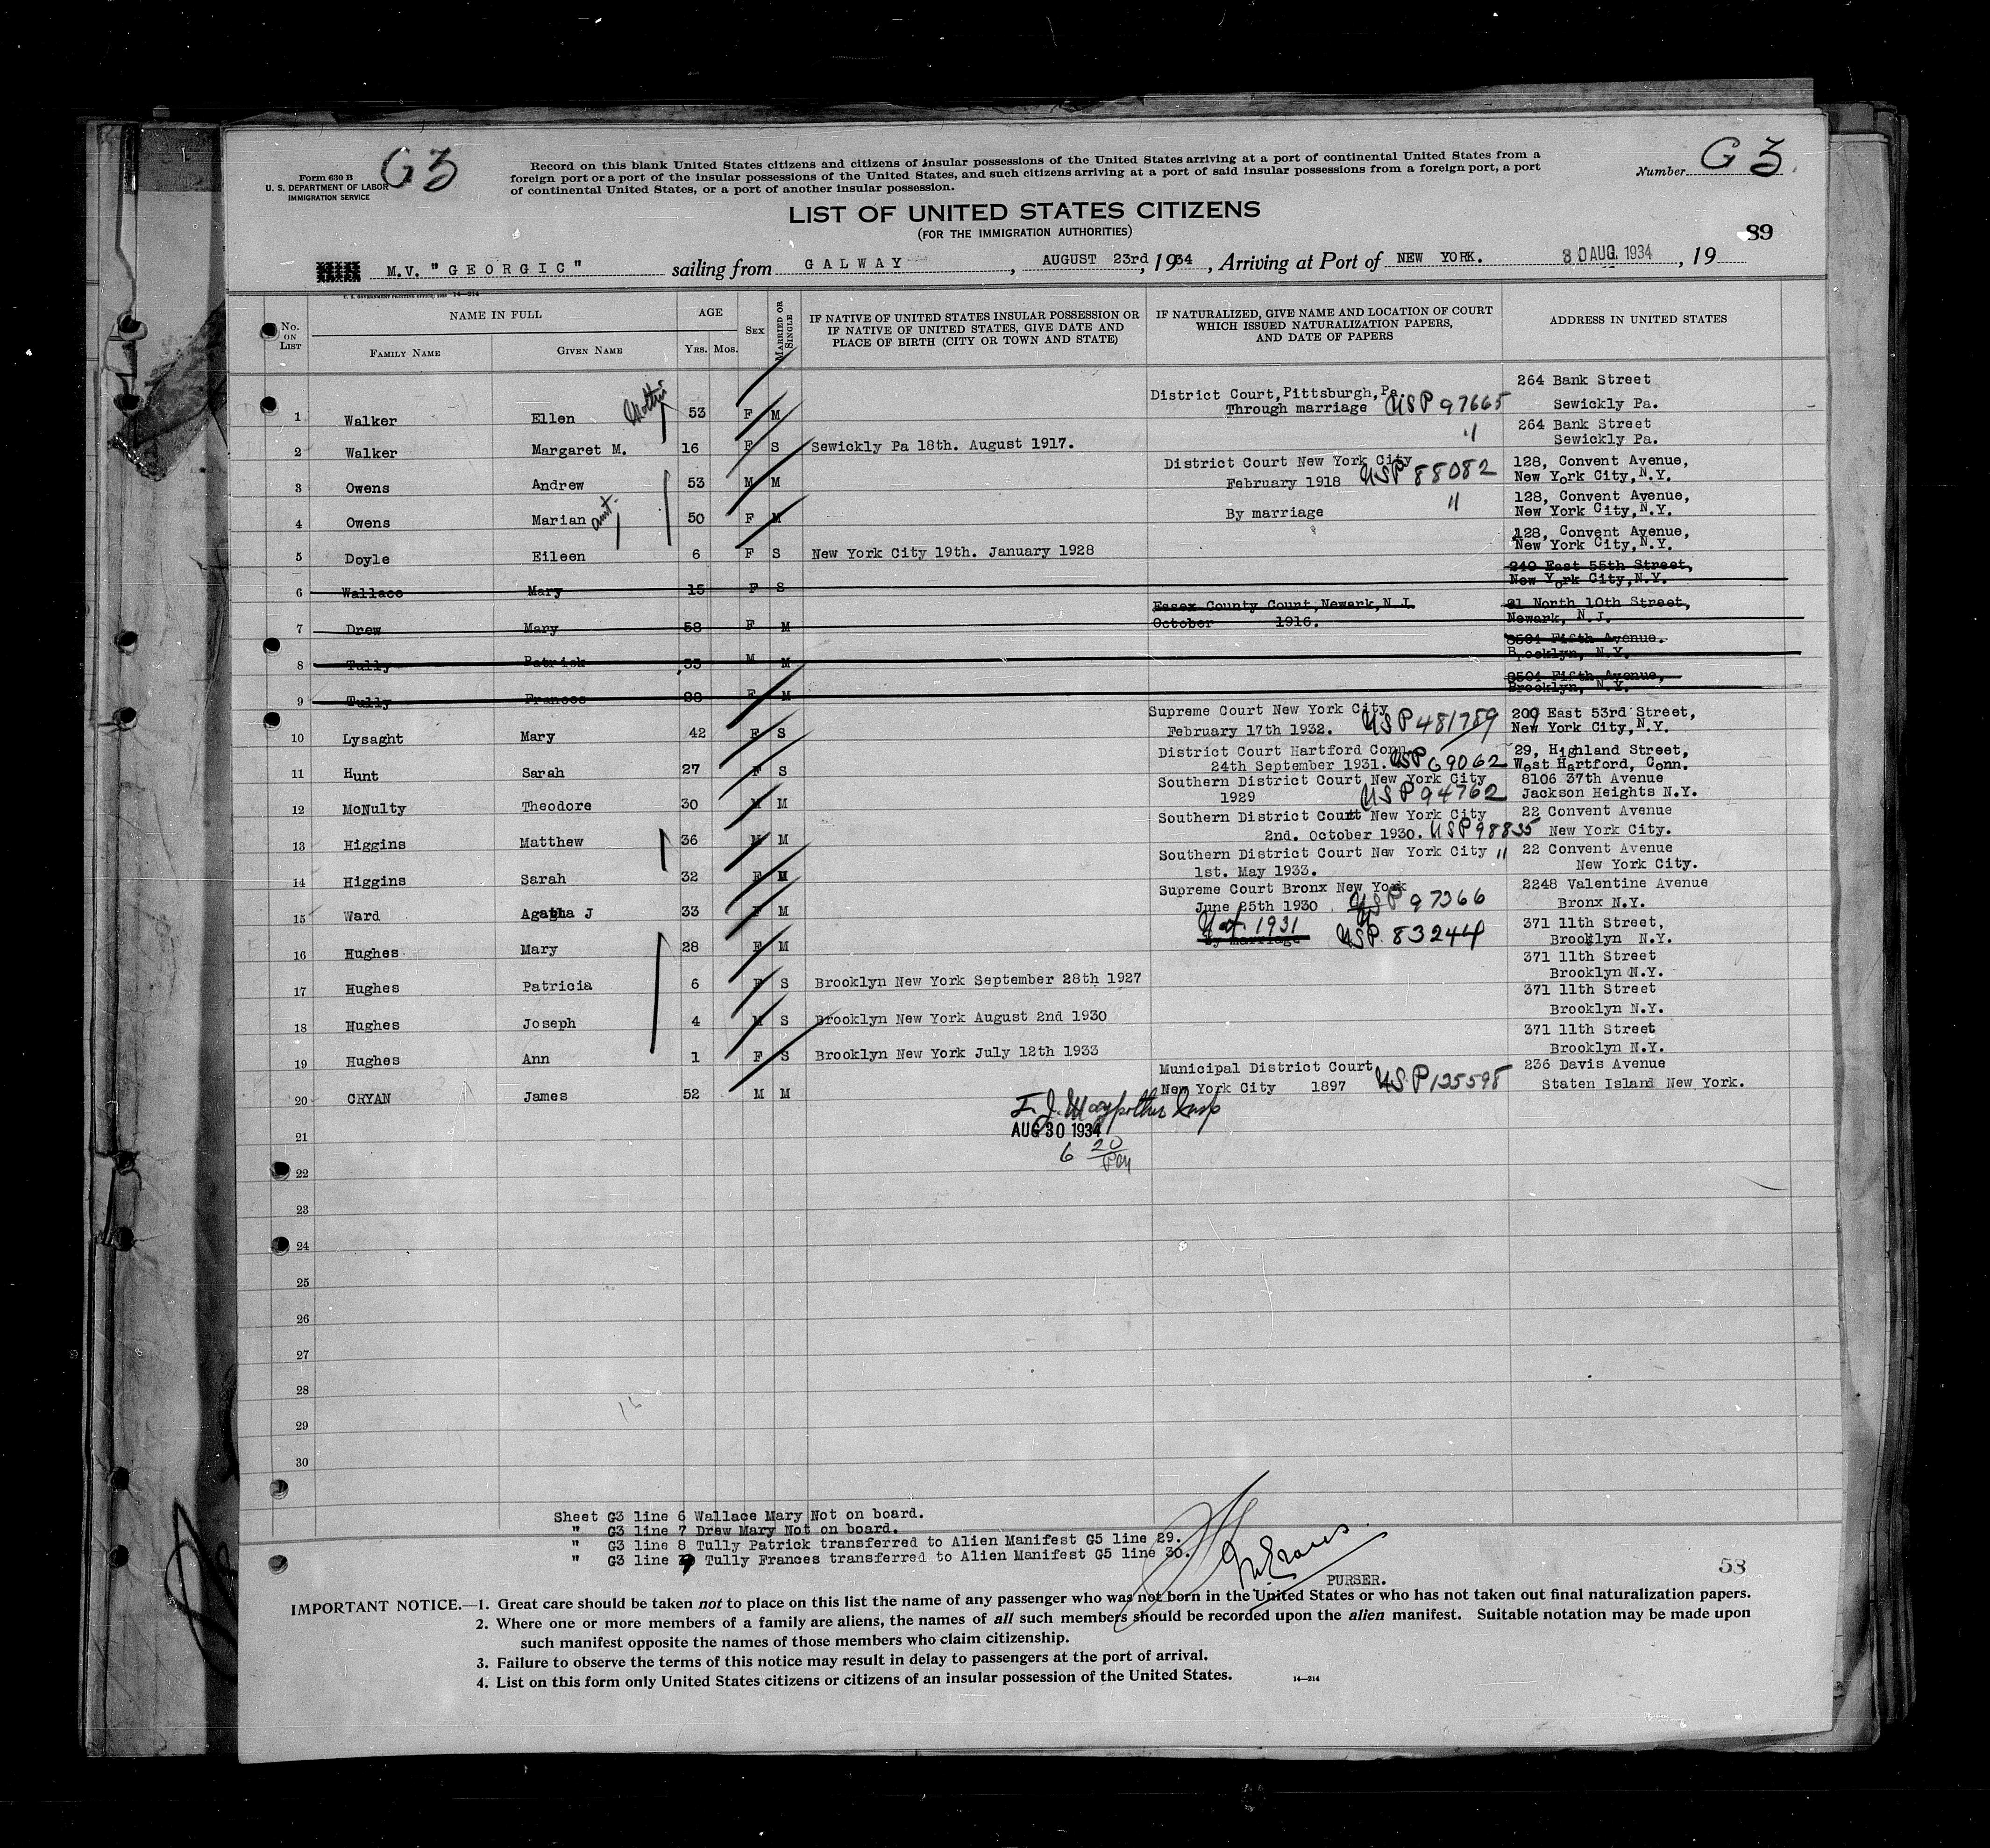 G3
Form 630 B
U. S. DEPARTMENT OF LABOR
IMMIGRATION SERVICE
Record on this blank United States citizens and citizens of insular possessions of the United States arriving at a port of continental United States from a
foreign port or a port of the insular possessions of the United States, and such citizens arriving at a port of said insular possessions from a foreign port, a port
of continental United States, or a port of another insular possession.
Number G3
LIST OF UNITED STATES CITIZENS
(FOR THE IMMIGRATION AUTHORITIES)
89
M.V. "GEORGIC" sailing from GALWAY, AUGUST 23rd, 1934, Arriving at Port of NEW YORK. 30 AUG. 1934, 19
14—214
No. ON LIST
NAME IN FULL
FAMILY NAME
GIVEN NAME
AGE
YRS. MOS.
SEX
MARRIED OR SINGLE
IF NATIVE OF UNITED STATES INSULAR POSSESSION OR
IF NATIVE OF UNITED STATES, GIVE DATE AND
PLACE OF BIRTH (CITY OR TOWN AND STATE)
IF NATURALIZED, GIVE NAME AND LOCATION OF COURT
WHICH ISSUED NATURALIZATION PAPERS,
AND DATE OF PAPERS
ADDRESS IN UNITED STATES
District Court, Pittsburgh, Pa 264 Bank Street
1 Walker Ellen Mother 53 F M Through marriage USP 97665 Sewickly Pa.
264 Bank Street
2 Walker Margaret M. 16 F S Sewickly Pa 18th. August 1917. " Sewickly Pa.
District Court New York City 128, Convent Avenue,
3 Owens Andrew 53 M M February 1918 USP 88082 New York City, N.Y.
128, Convent Avenue,
4 Owens Marian aunt 50 F M By marriage " New York City, N.Y.
128, Convent Avenue,
5 Doyle Eileen 6 F S New York City 19th. January 1928 New York City, N.Y.
240 East 55th Street,
6 Wallace Mary 15 F S New York City, N.Y.
Essex County Court, Newark, N.J. 81 North 10th Street,
7 Drew Mary 58 F M October 1916. Newark, N.J.
8501 Fifth Avenue.
8 Tully Patrick 35 M M Brooklyn, N.Y.
8501 Fifth Avenue,
9 Tully Frances F M Brooklyn, N.Y.
Supreme Court New York City 209 East 53rd Street,
10 Lysaght Mary 42 F S February 17th 1932. USP 481759 New York City, N.Y.
District Court Hartford Conn. 29, Highland Street,
11 Hunt Sarah 27 F S 24th September 1931. USP 69062 West Hartford, Conn.
Southern District Court New York City 8106 37th Avenue
12 McNulty Theodore 30 M M 1929 USP 94762 Jackson Heights N.Y.
Southern District Court New York City 22 Convent Avenue
13 Higgins Matthew 36 M M 2nd. October 1930. USP 98835 New York City.
Southern District Court New York City " 22 Convent Avenue
14 Higgins Sarah 32 F M 1st. May 1933. New York City.
Supreme Court Bronx New York 2248 Valentine Avenue
15 Ward Agatha J 33 F M June 25th 1930 USP 97366 Bronx N.Y.
Nat. 1931 371 11th Street,
16 Hughes Mary 28 F M By marriage USP. 83244 Brooklyn N.Y.
371 11th Street
17 Hughes Patricia 6 F S Brooklyn New York September 28th 1927 Brooklyn N.Y.
371 11th Street
18 Hughes Joseph 4 M S Brooklyn New York August 2nd 1930 Brooklyn N.Y.
371 11th Street
19 Hughes Ann 1 F S Brooklyn New York July 12th 1933 Brooklyn N.Y.
Municipal District Court 236 Davis Avenue
20 CRYAN James 52 M M New York City 1897 USP 135598 Staten Island New York.
21 AUG 30 1934
6 20 PM
22
23
24
25
26
27
28
29
30
Sheet G3 line 6 Wallace Mary Not on board.
" G3 line 7 Drew Mary Not on board.
" G3 line 8 Tully Patrick transferred to Alien Manifest G5 line 29.
" G3 line 9 Tully Frances transferred to Alien Manifest G5 line 30.
PURSER.
53
IMPORTANT NOTICE.—1. Great care should be taken not to place on this list the name of any passenger who was not born in the United States or who has not taken out final naturalization papers.
2. Where one or more members of a family are aliens, the names of all such members should be recorded upon the alien manifest. Suitable notation may be made upon
such manifest opposite the names of those members who claim citizenship.
3. Failure to observe the terms of this notice may result in delay to passengers at the port of arrival.
4. List on this form only United States citizens or citizens of an insular possession of the United States.
14—214